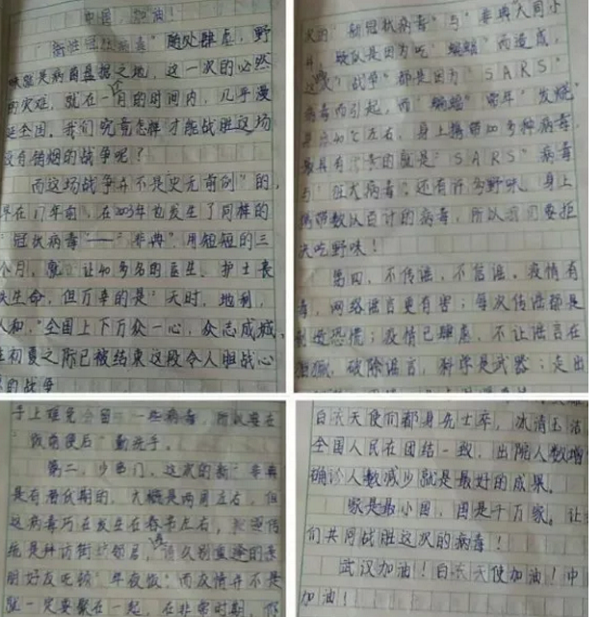 中国，加油！
"新型冠状病毒"随处肆虐，野
味就是病菌盘据之地，这一次的必然
的灾难，就在一月的时间内，几乎漫
延全国。我们究竟怎样才能战胜这场
没有销烟的战争呢？
而这场战争并不是"史无前例"的，
早在17年前，在2003年也发生了同样的
"冠状病毒"——"非典"用短短的三
个月，就让40多名的医生、护士丧
失生命，但万幸的是"天时，地利，
人和，"全国上下万众一心，众志成城，
在初夏之际已被结束这段令人胆战心
的战争
次的"新冠状病毒"与"非典"大同小
是因为吃"蝙蝠"而造成，
战争"都是因为"SARS"
病毒而引起，而"蝙蝠"常年"发烧"
40℃左右，身上携带100多种病毒，
最具有代表的就是"SARS"病毒
与"狂犬病毒"。还有许多野味，身上
携带数以百计的病毒，所以我们要拒
绝吃野味！
第四，不传谣，不信谣。疫情有
毒，网络谣言更有害；每次传谣都是
制造恐慌；疫情已肆虐，不让谣言在
猖獗，破除谣言，科学是武器；走出
手上难免会留一些病毒，所以要在
"饭前便后"勤洗手。
第二，少出门，这次的新"非典
是有潜伏期的，大概是两周左右，但
这病毒巧在发生在春节左右，
是拜访街坊邻居，
朋好友吃顿"年夜饭"而友情并不是
就一定要聚在一起，在非常时期，
白衣天使们都身先士卒，冰清玉洁
全国人民在团结一致，出院人数增
确诊人数减少就是最好的成果。
家是最小国，国是千万家。让
们共同战胜这次的病毒！
武汉加油！白衣天使加油！中
加油！